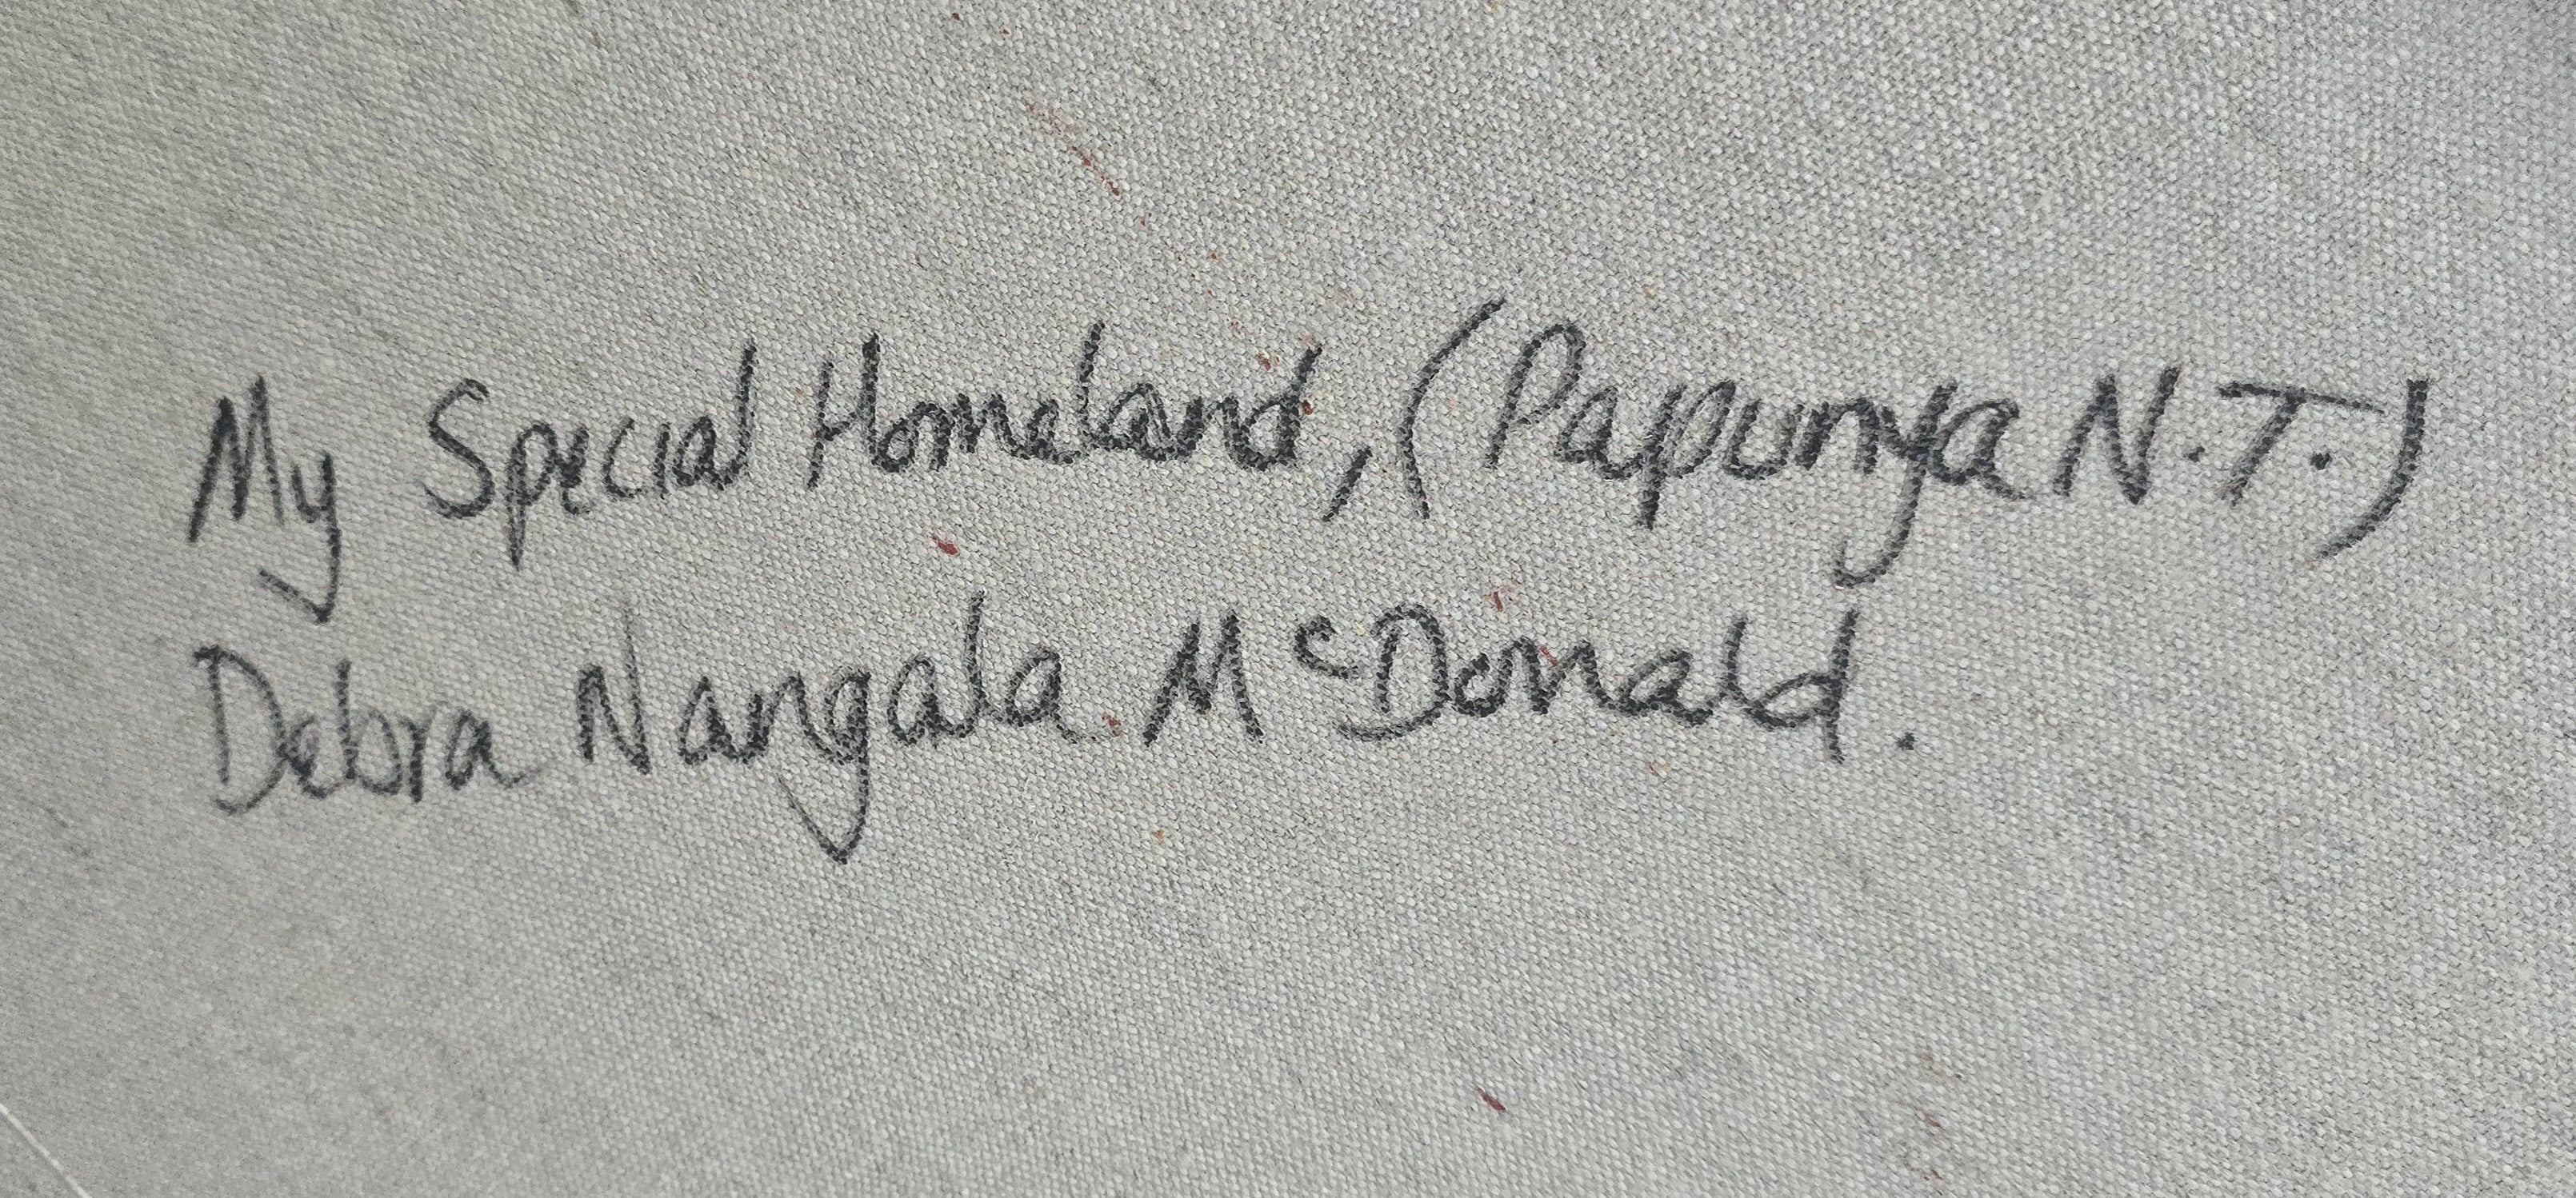 My Special Homeland, (Papunya N.T.)
Debra Nangala McDonald.